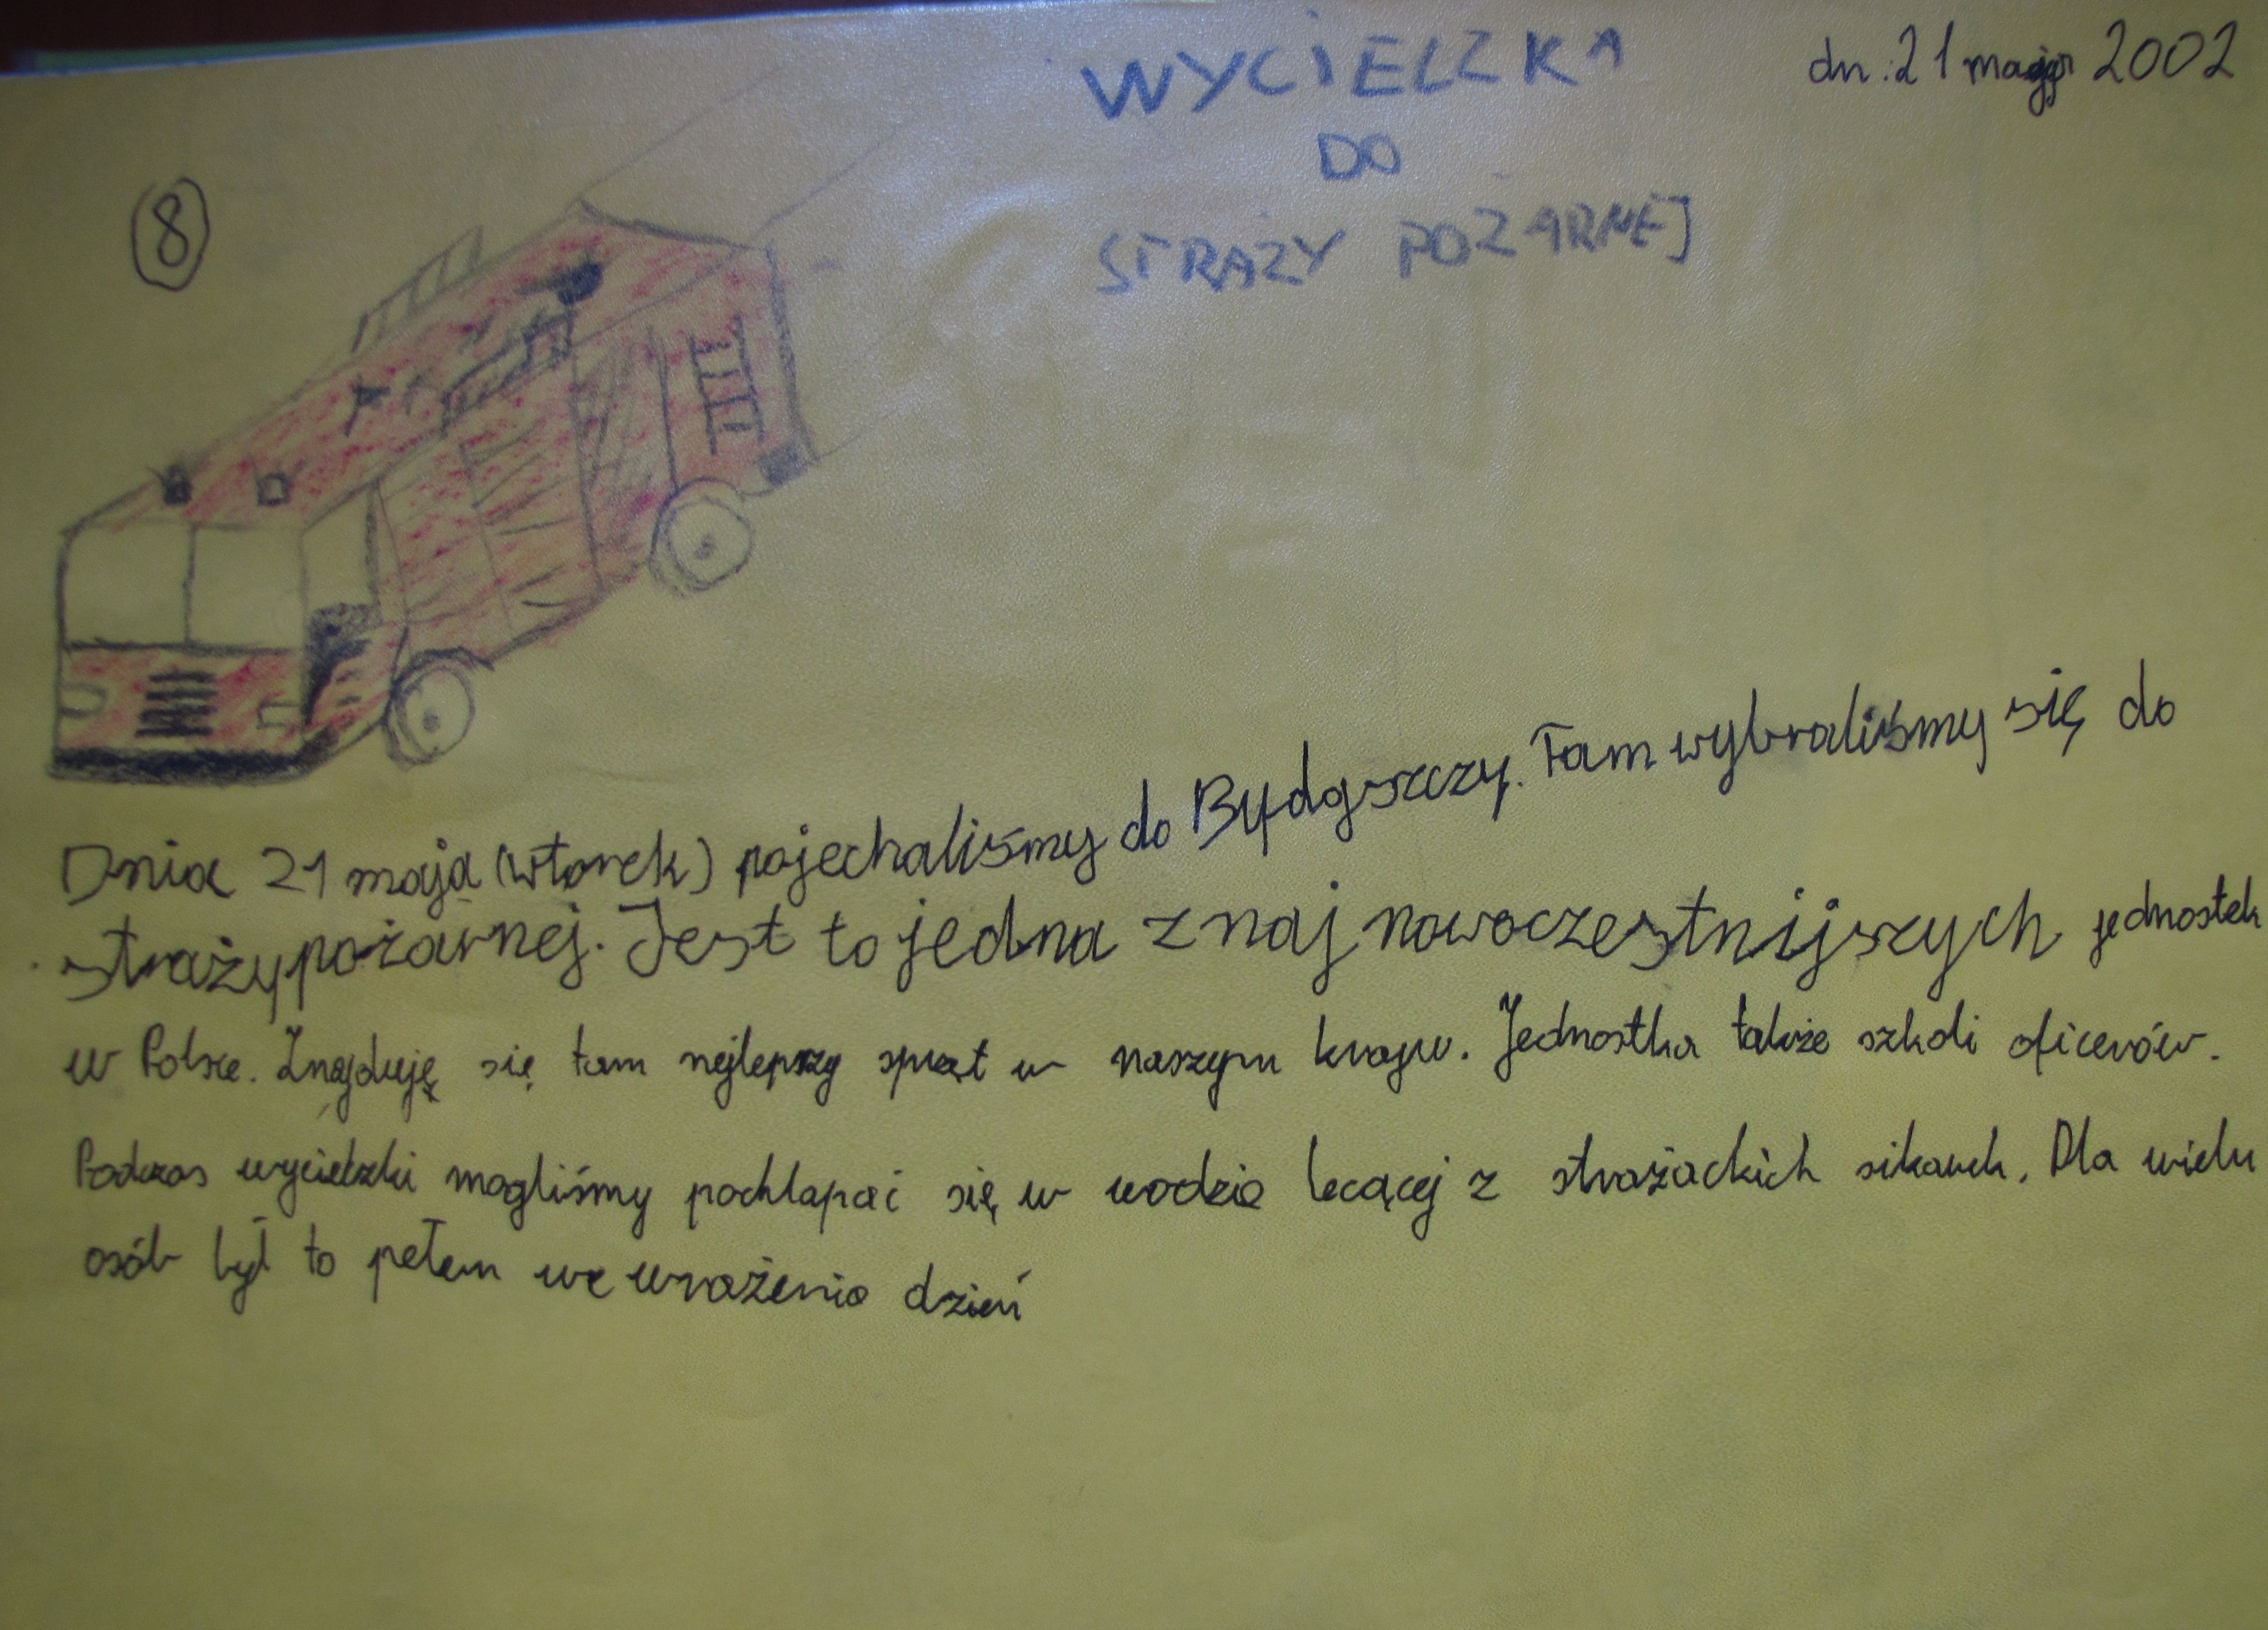 WYCIECZKA
dn. 21 maja 2002
DO
STRAŻY POŻARNEJ
8
Dnia 21 maja (wtorek) pojechaliśmy do Bydgszczy. Tam wybraliśmy się do
straży pożarnej. Jest to jedna z naj nowoczestnijszych jednostek
w Polsce. Znajduję się tam nejlepszy sprzęt w naszym kraju. Jednostka także szkoli oficerów.
Podczas wycieczki mogliśmy pochlapać się w wodzie lecącej z strażackich sikawek. Dla wielu
osób był to pełen we wrażenia dzień